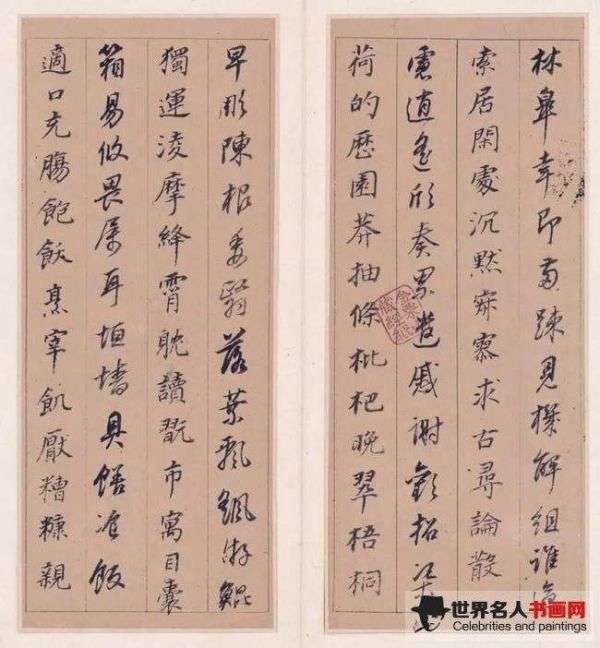 林皋幸即兩疎見機解組誰逼
索居閑處沉默寂寥求古尋論散
慮逍遙欣奏累遣慼謝歡招渠
荷的歷園莽抽條枇杷晚翠梧桐
早彫陳根委翳落葉飄颻游鯤
獨運淩摩絳霄耽讀翫市寓目囊
箱易攸畏屬耳垣墻具膳湌飯
適口充腸飽飫烹宰飢厭糟糠親
金粟山藏經紙
世界名人书画网
Celebrities and paintings